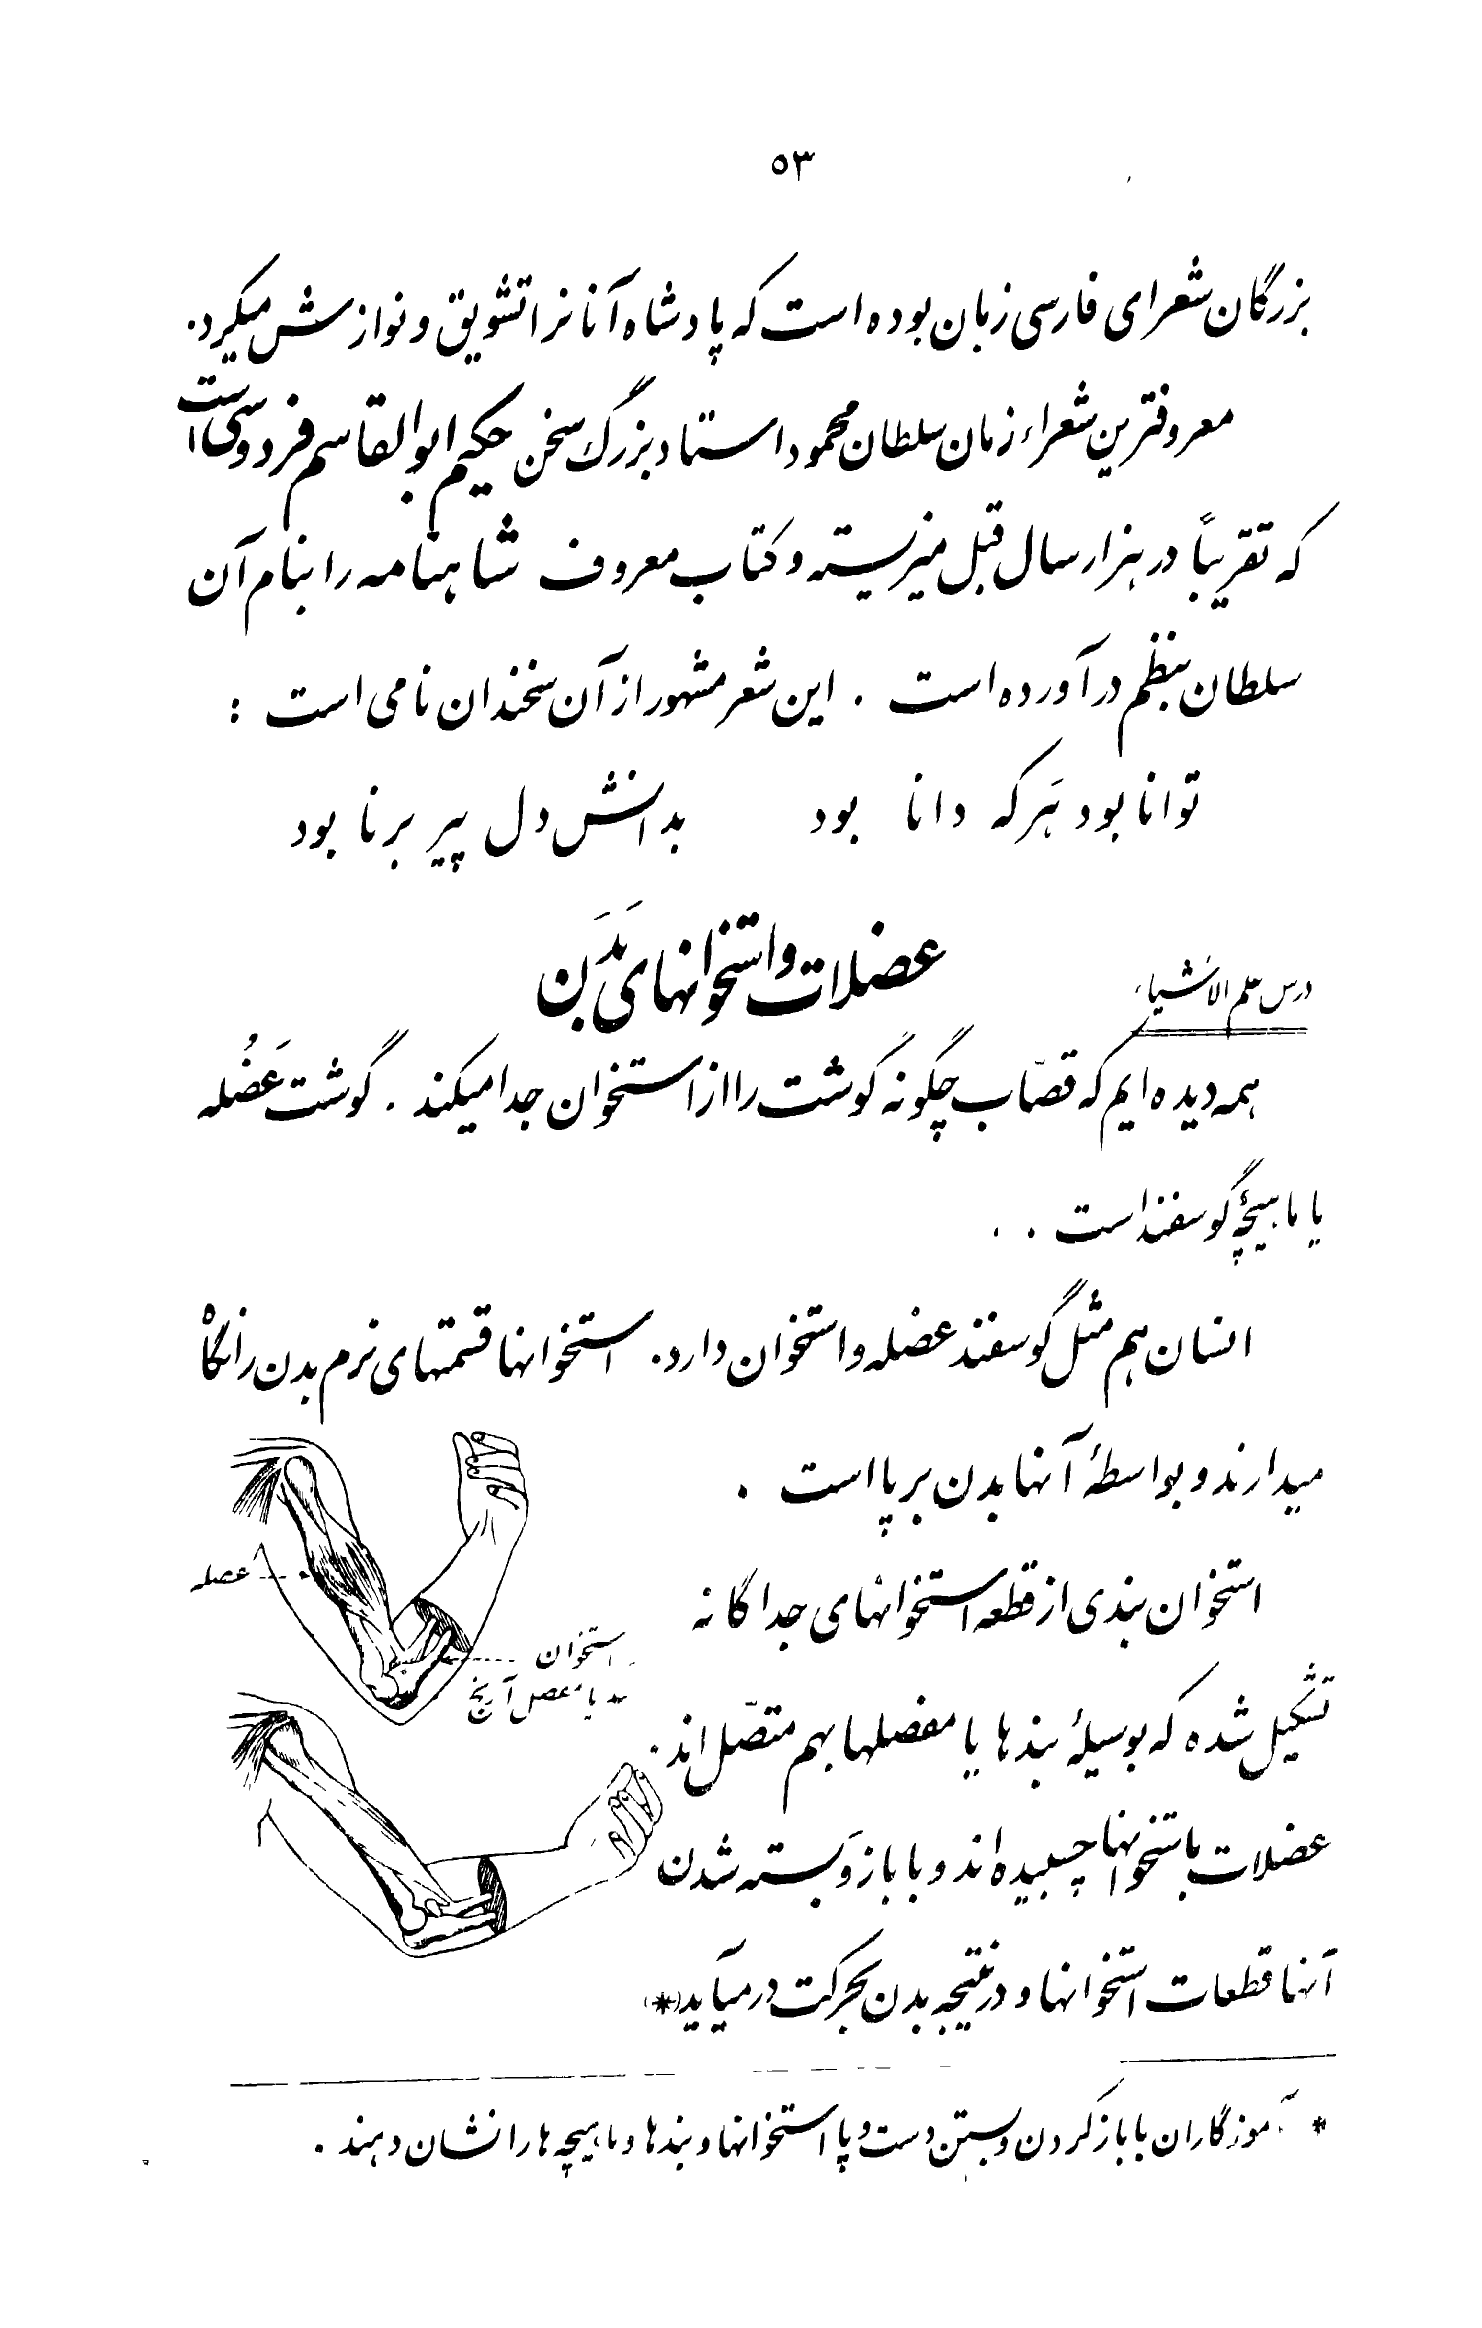 ۵۳
بزرگان شعرای فارسی زبان بوده است که پادشاه آنانرا تشویق و نوازش میکرد.
معروفترین شعراء زمان سلطان محمود استاد بزرگ سخن حکیم ابوالقاسم فردوسی است
که تقریباً در هزار سال قبل میزیسته و کتاب معروف شاهنامه را بنام آن
سلطان بنظم در آورده است . این شعر مشهور از آن سخندان نامی است :
توانا بود هَرکه دانا بود بدانش دل پیر برنا بود
درس علم الاشیاء
عضلات و استخوانهای بَدَن
همه دیده ایم که قصّاب چگونه گوشت را از استخوان جدا میکند . گوشت عَضُله
یا ماهیچهٔ گوسفند است . .
انسان هم مثل گوسفند عضله و استخوان دارد. استخوانها قسمتهای نرم بدن را نگاه
میدارند و بواسطهٔ آنها بدن برپا است .
عضله
استخوان بندی از قطعه استخوانهای جداگانه
استخوان
بند یا مفصل آرنج
تشکیل شده که بوسیلهٔ بندها یا مفصلها بهم متصّل اند.
عضلات باستخوانها چسبیده اند و با باز وَ بسته شدن
آنها قطعات استخوانها و در نتیجه بدن بحرکت در میآید(*)
* آموزگاران با باز کردن و بستن دست و پا استخوانها و بندها و ماهیچه ها را نشان دهند .